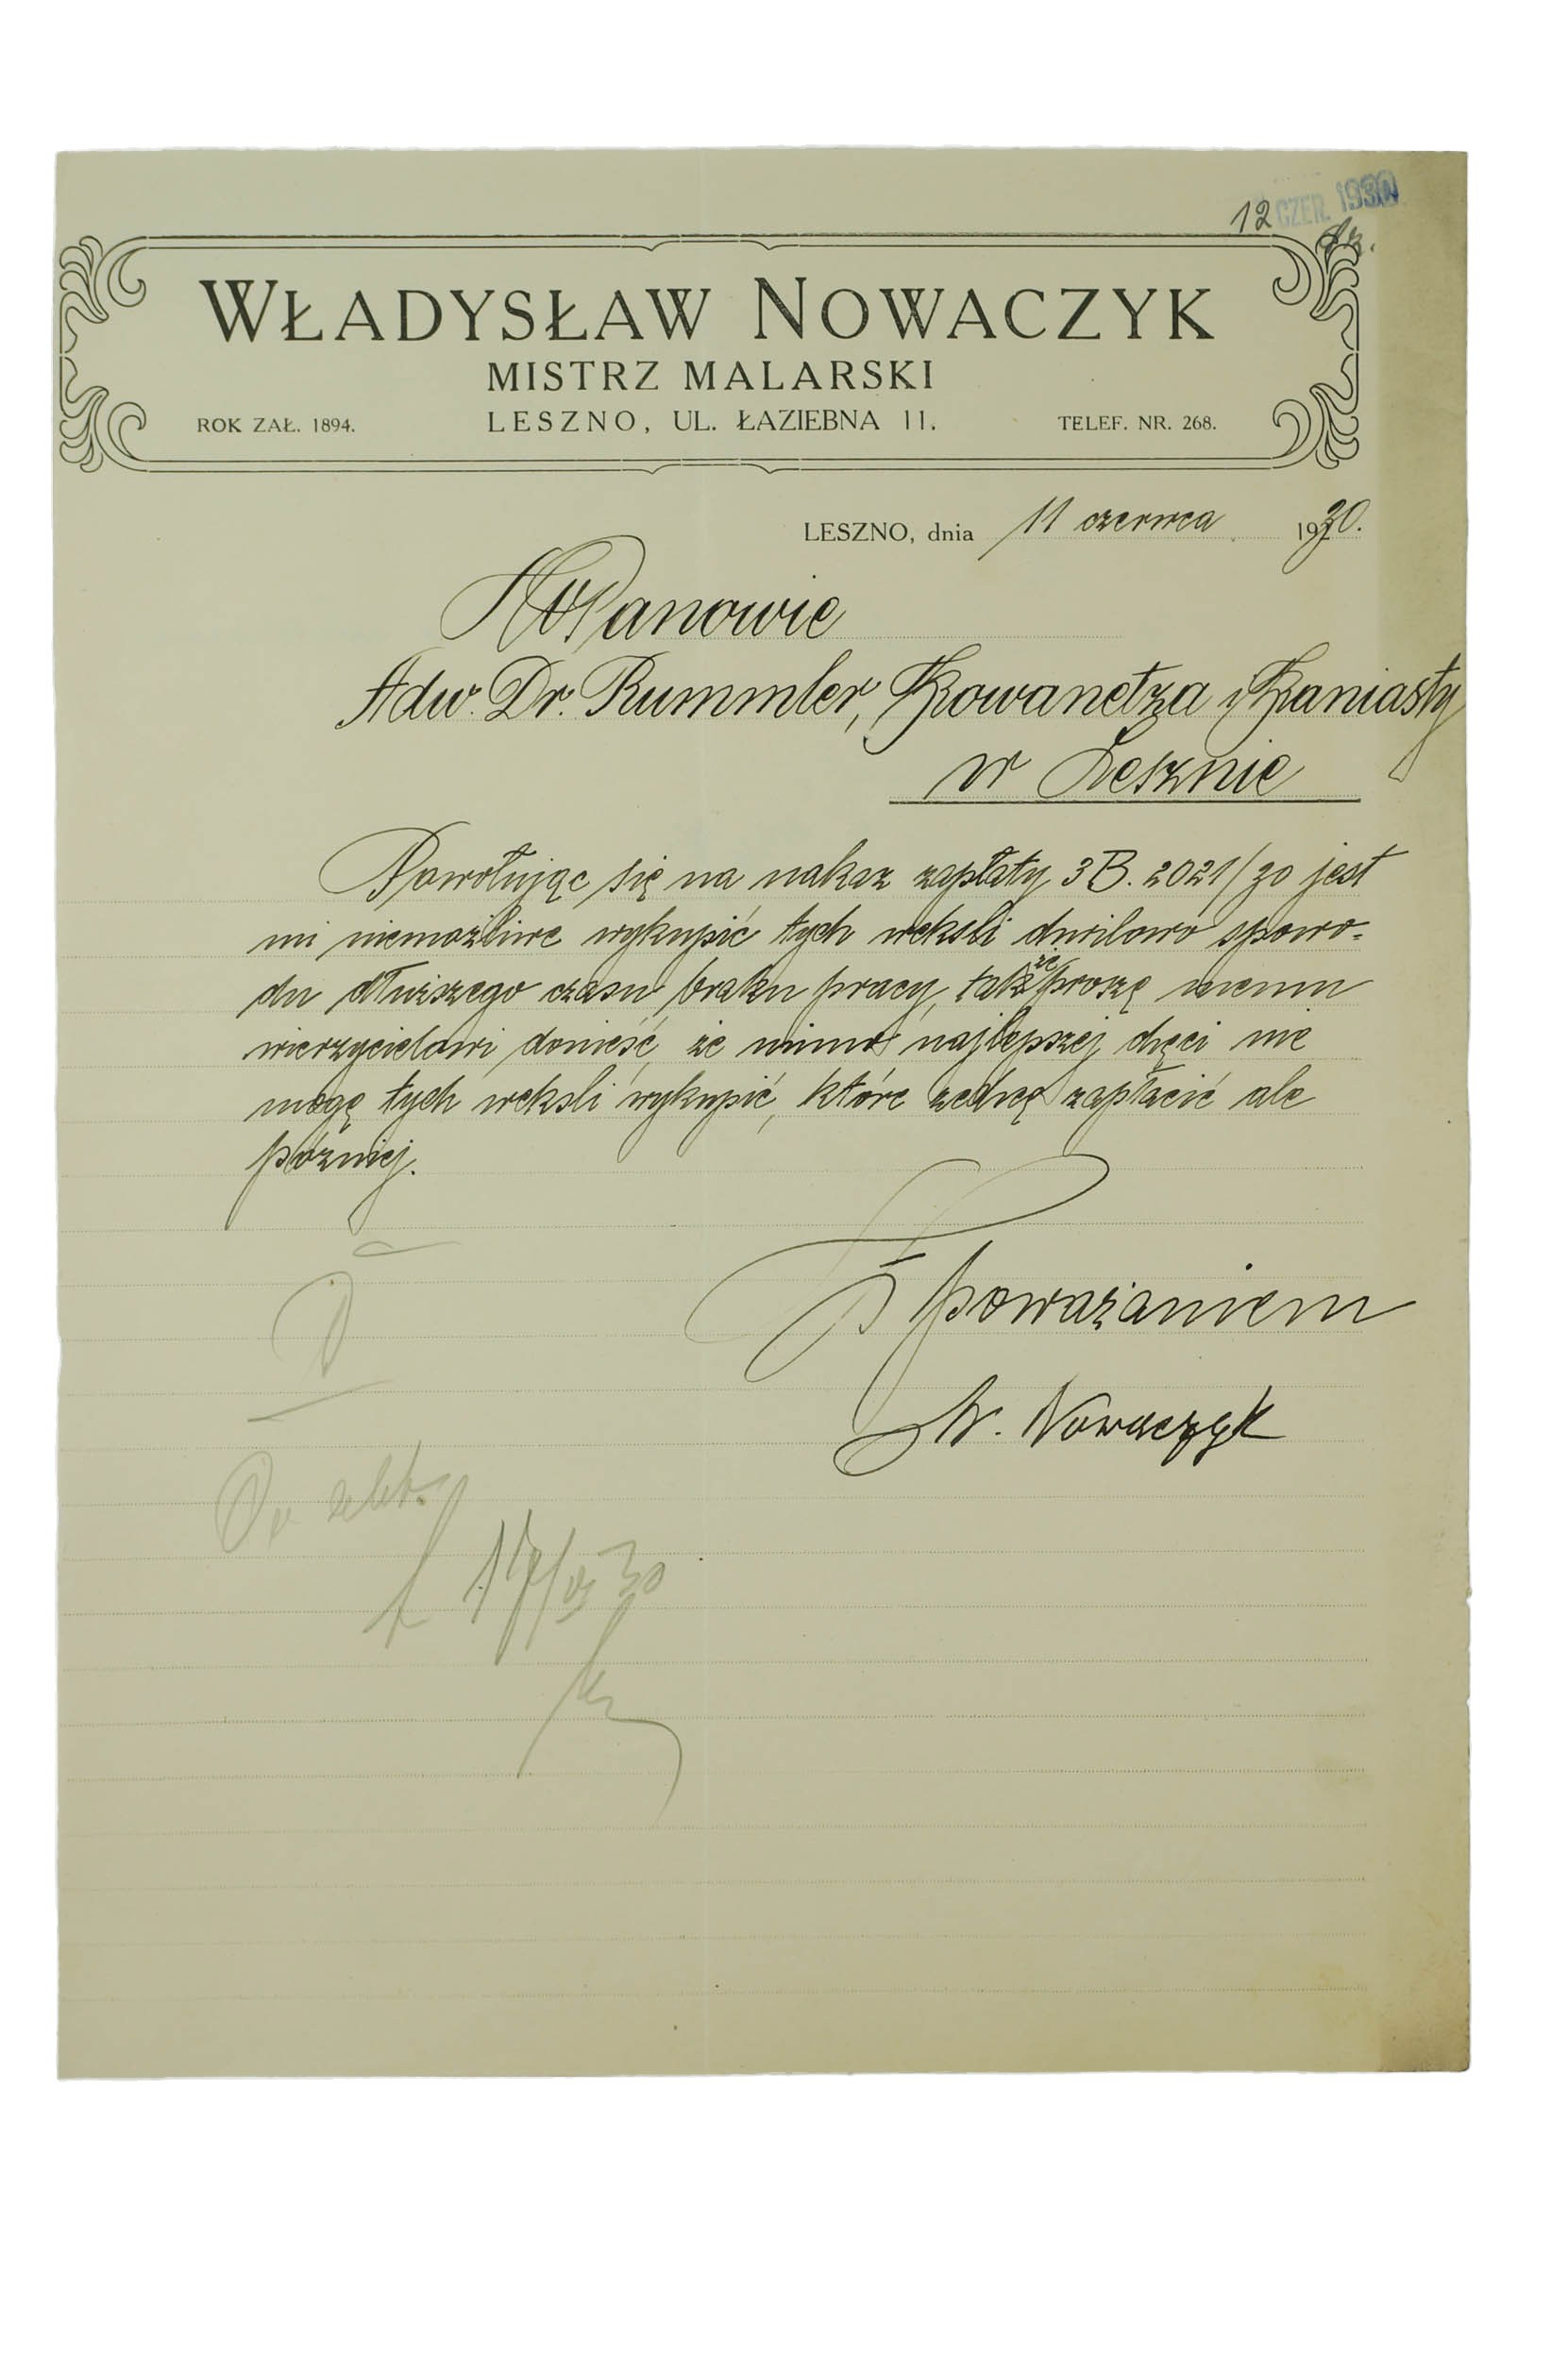 12 CZER. 1930
WŁADYSŁAW NOWACZYK
MISTRZ MALARSKI
ROK ZAŁ. 1894. LESZNO, UL. ŁAZIEBNA 11. TELEF. NR. 268.
LESZNO, dnia 11 czerwca 1930.
WPanowie
Adw. Dr. Rummler, Kowanetza i Kaniasty
w Lesznie
Powołując się na nakaz zapłaty 3 B. 2021/30 jest
mi niemożliwe wykupić tych weksli chwilowo spowo=
du dłuższego czasu braku pracy, tak że proszę memu
wierzycielowi donieść, że mimo najlepszej chęci nie
mogę tych weksli wykupić, które zechcę zapłacić ale
później.
Z poważaniem
W. Nowaczyk
17/VI 30